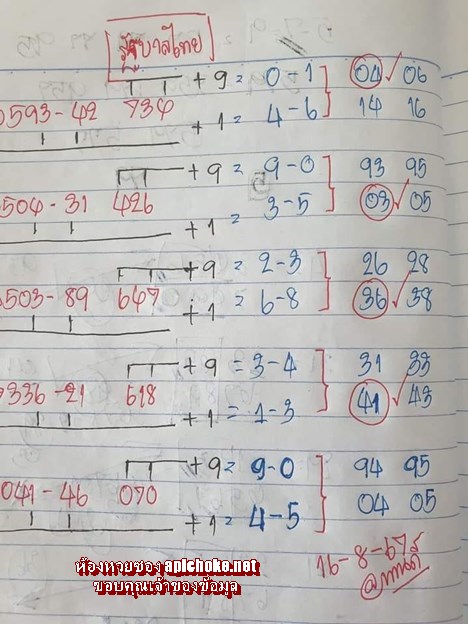 รัฐบาลไทย
+ 9 = 0 - 1 04 ✓ 06
0593 - 42 734
+ 1 = 4 - 6 14 16
+ 9 = 9 - 0 93 95
504 - 31 426
+ 1 = 3 - 5 03 ✓ 05
+ 9 = 2 - 3 26 28
503 - 89 647
+ 1 = 6 - 8 36 ✓ 38
+ 9 = 3 - 4 31 33
336 - 21 618
+ 1 = 1 - 3 41 ✓ 43
+ 9 = 9 - 0 94 95
041 - 46 070
+ 1 = 4 - 5 04 05
16 - 8 - 67
ห้องหวยซอง apichoke.net
ขอบคุณเจ้าของข้อมูล